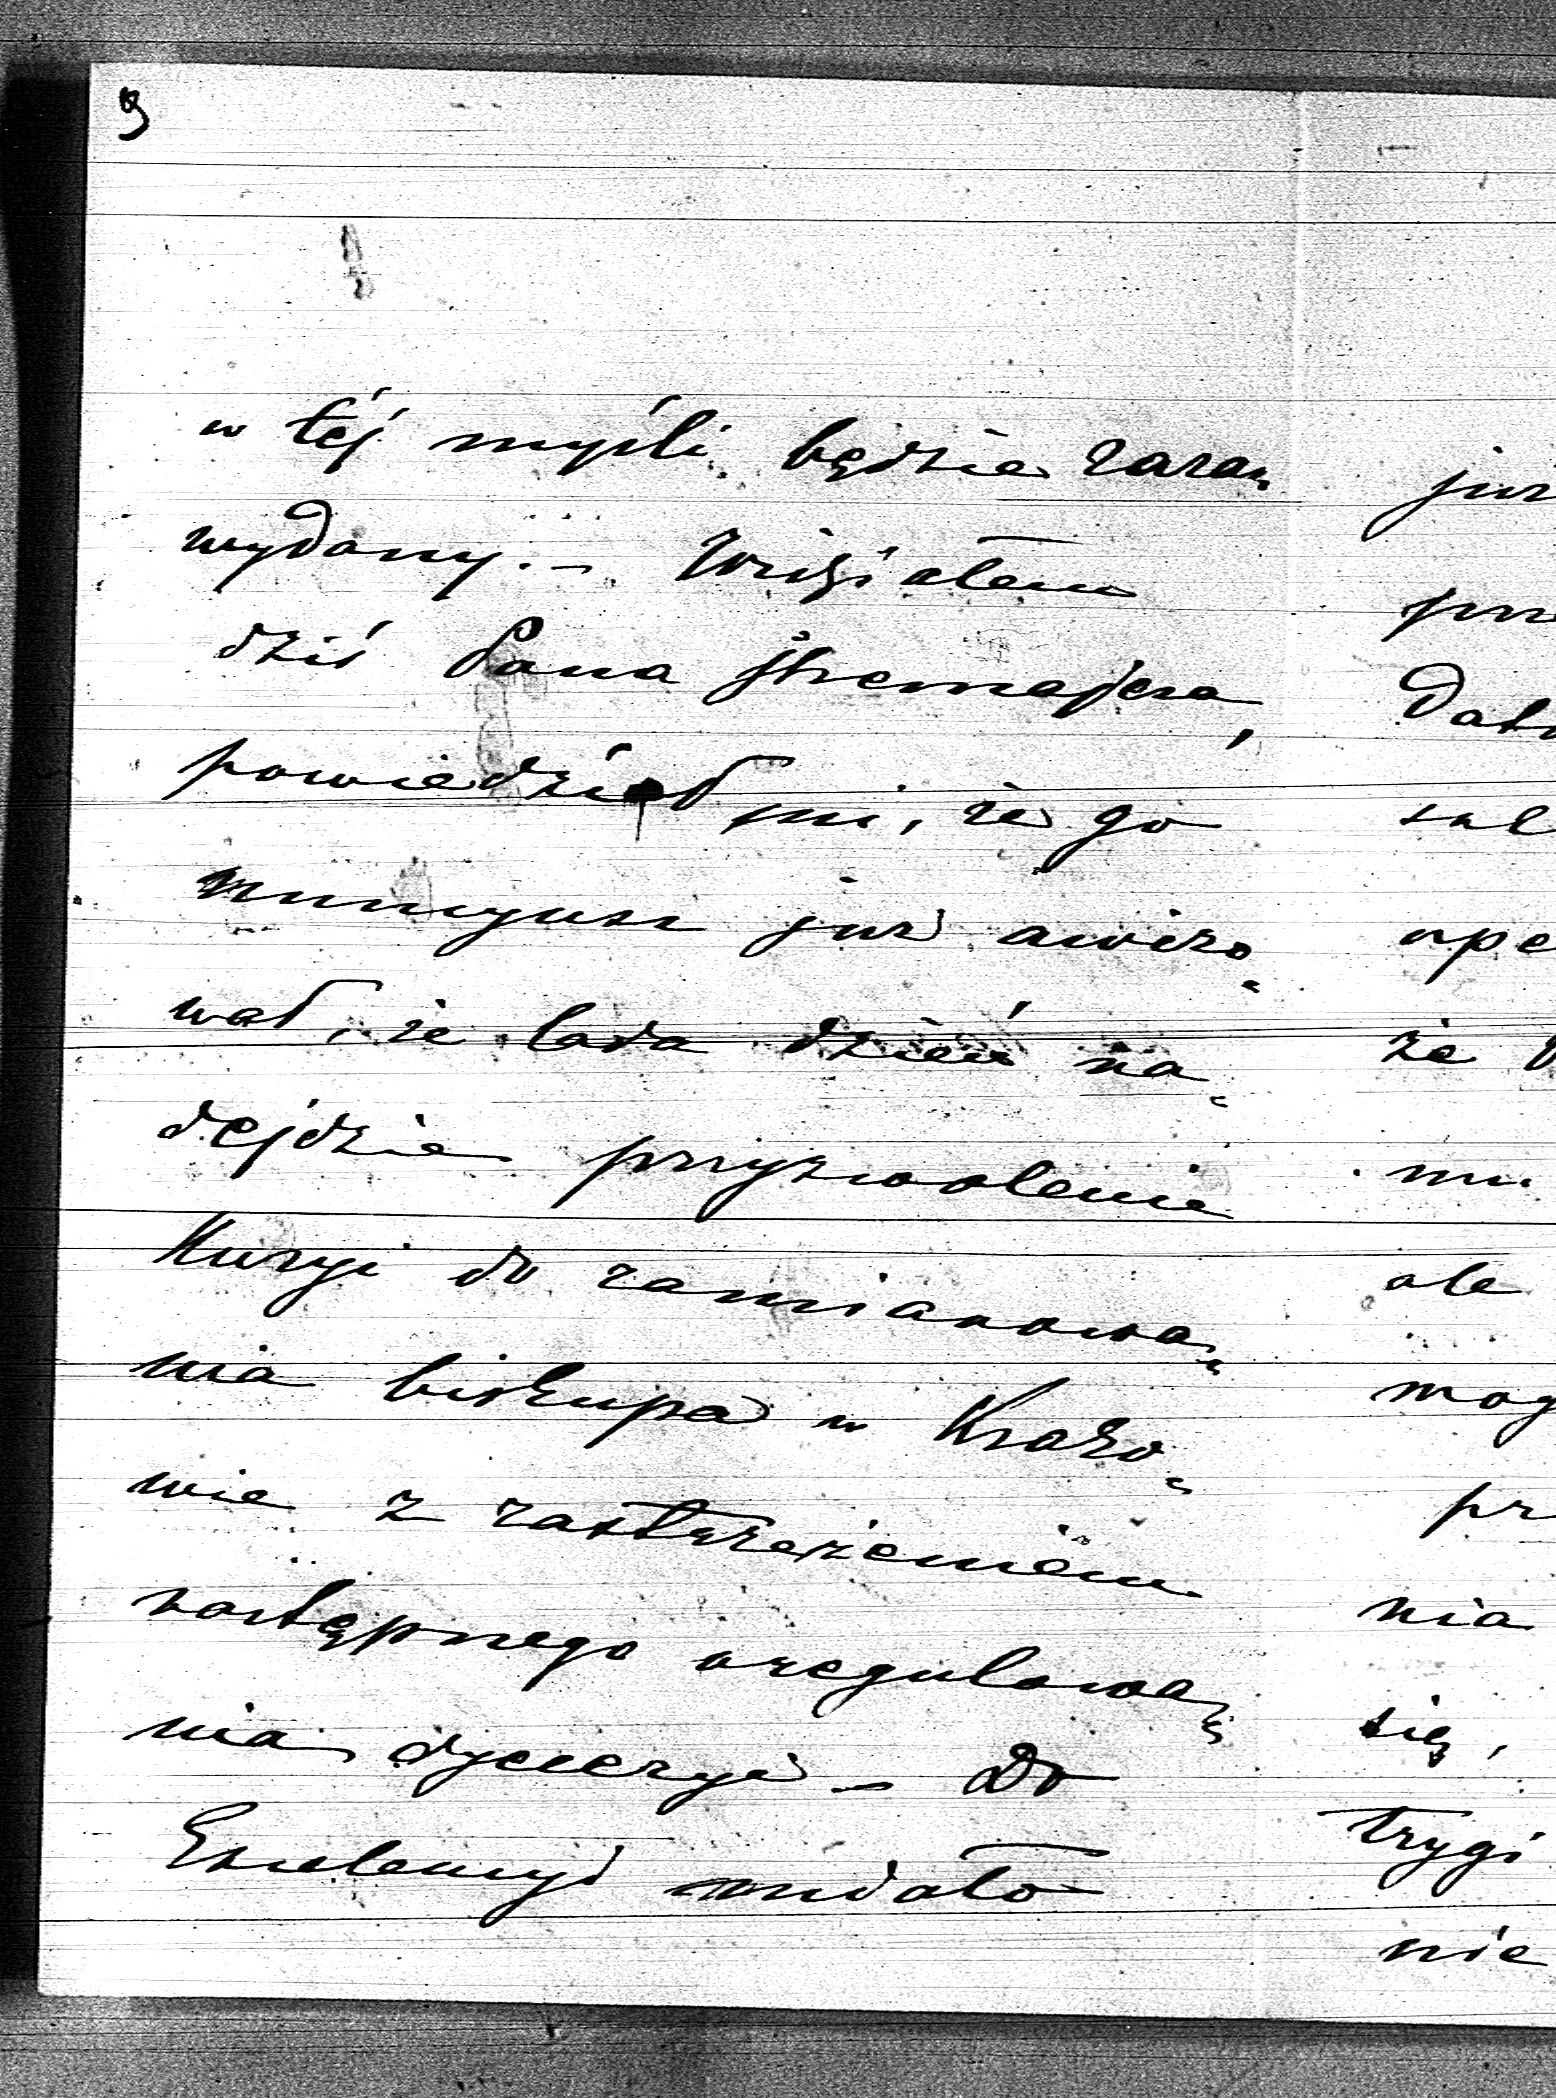 9
w téj myśli będzie zaraz
wydany. - Widziałem
dziś Pana Stremajera,
powiedział mi, że go
nuncyusz już awizo-
wał, że lada dzień na-
dejdzie przyzwolenie
Kuryi do zamianowa-
nia biskupa w Krako-
wie z zastrzeżeniem
następnego uregulowa-
nia dyecezyi - Do
Exelencyi udało
już
prz
dat
sal
ope
że
mu
ale
mog
pr
nia
się,
trygi
nie